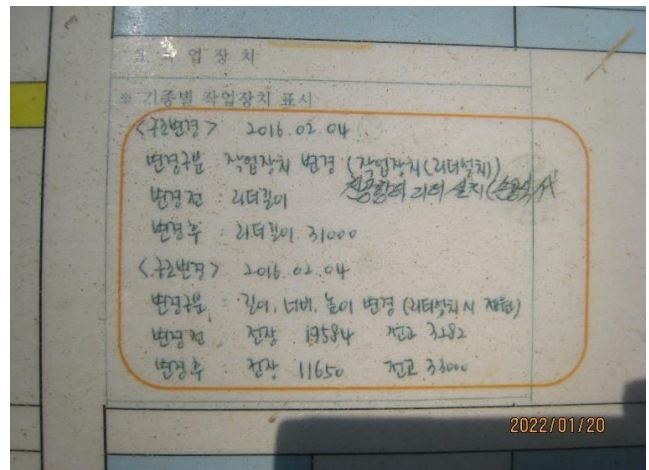 작업장치
※ 기종별 작업장치 표시
<구조변경> 2016.02.04
변경구분 : 작업장치 변경 (작업장치(리더설치))
변경전 : 리더길이 리더 설치
변경후 : 리더길이 31000
<구조변경> 2016.02.04
변경구분 : 길이, 너비, 높이 변경 (리더설치시 제원)
변경전 전장 19584 전고 3282
변경후 : 전장 11650 전고 33000
2022/01/20